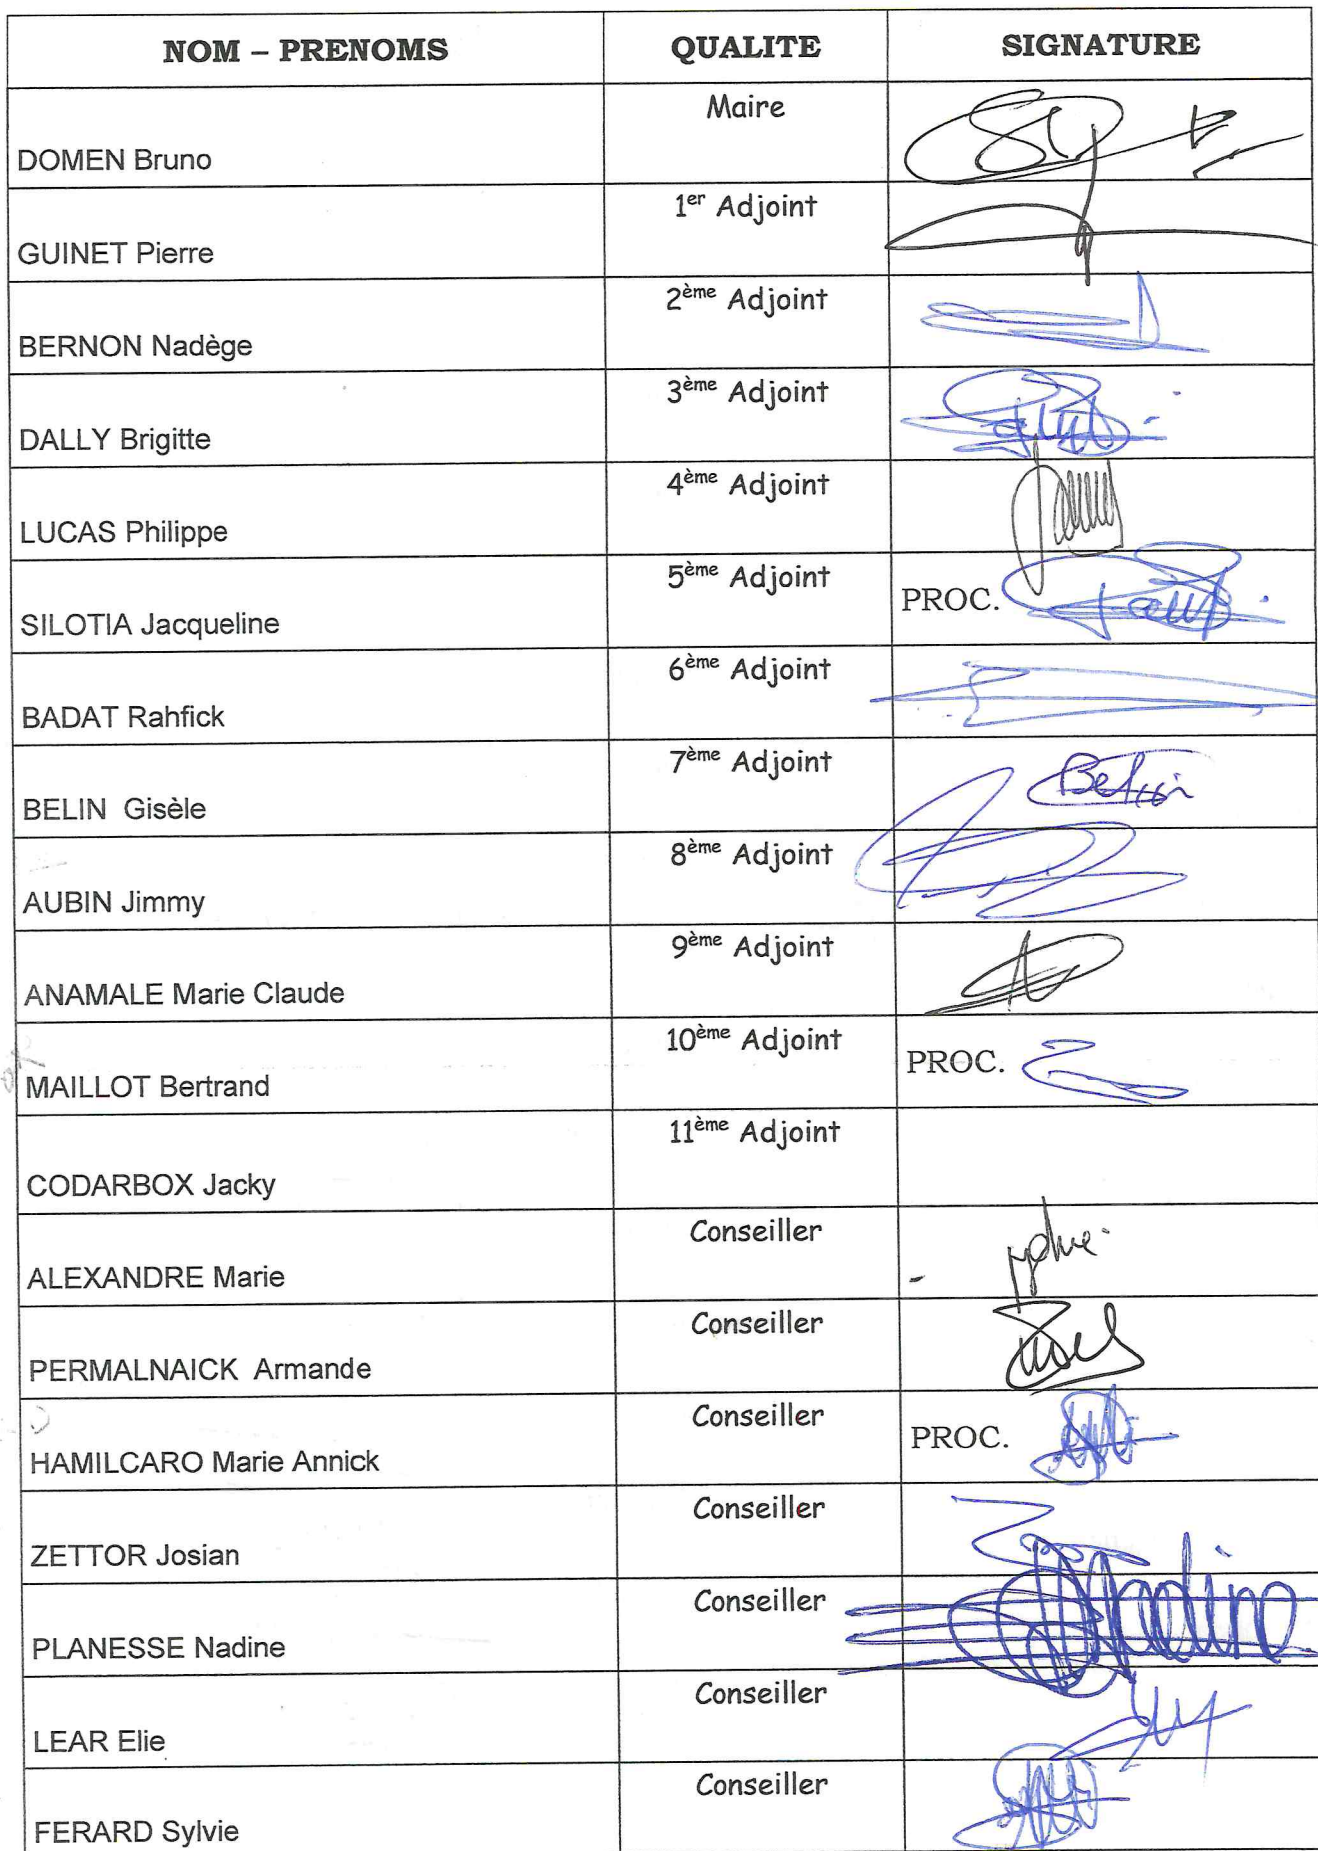 NOM – PRENOMS QUALITE SIGNATURE
Maire
DOMEN Bruno
1er Adjoint
GUINET Pierre
2ème Adjoint
BERNON Nadège
3ème Adjoint
DALLY Brigitte
4ème Adjoint
LUCAS Philippe
5ème Adjoint
SILOTIA Jacqueline PROC.
6ème Adjoint
BADAT Rahfick
7ème Adjoint
BELIN Gisèle Belin
8ème Adjoint
AUBIN Jimmy
9ème Adjoint
ANAMALE Marie Claude
10ème Adjoint
MAILLOT Bertrand PROC.
11ème Adjoint
CODARBOX Jacky
Conseiller
ALEXANDRE Marie
Conseiller
PERMALNAICK Armande
Conseiller
HAMILCARO Marie Annick PROC.
Conseiller
ZETTOR Josian
Conseiller
PLANESSE Nadine Nadine
Conseiller
LEAR Elie
Conseiller
FERARD Sylvie